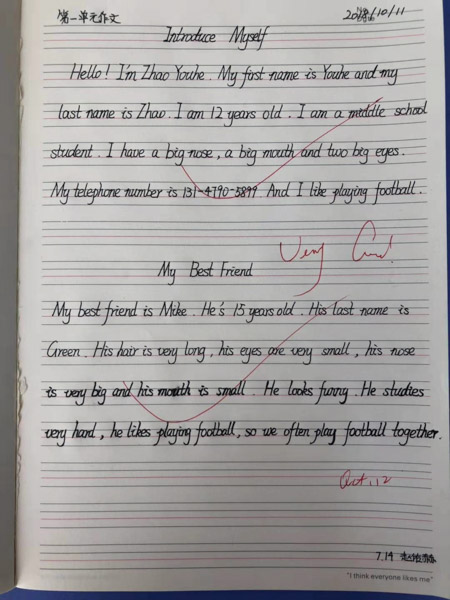 第一单元作文 10/11
Introduce Myself
Hello! I'm Zhao Youhe. My first name is Youhe and my
last name is Zhao. I am 12 years old. I am a middle school
student. I have a big nose, a big mouth and two big eyes.
My telephone number is 131-4790-5899. And I like playing football.
Very Good!
My Best Friend
My best friend is Mike. He's 15 years old. His last name is
Green. His hair is very long, his eyes are very small, his nose
is very big and his mouth is small. He looks funny. He studies
very hard, he likes playing football, so we often play football together.
Oct. 12
7.14
"I think everyone likes me"